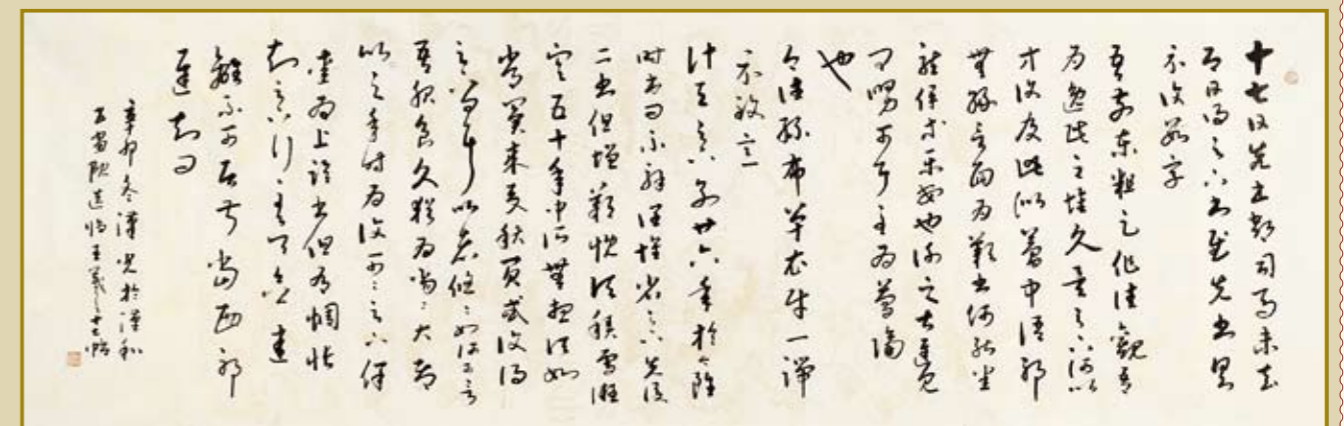 十七日先書郗司馬未去
即日得足下書為慰先書以具
示復數字
吾前東粗足作佳觀吾
為逸民之懷久矣足下何以
方復及此似夢中語耶
無緣言面為歎書何能悉
龍保等平安也謝之甚遲見
卿舅可耳至為簡隔
也
今往絲布單衣財一端
示致意
計與足下別廿六年於今雖
時書問不解闊懷省足下先後
二書但增歎慨頃積雪凝
寒五十年中所無想頃如
常冀來夏秋間或復得
足下問耳比者悠悠如何可言
吾服食久猶為劣劣大都
比之年時為復可可足下保
愛為上臨書但有惆悵
知足下行至吳念違
離不可居叔當西耶
遲知問
辛卯冬漢光於漢和
書畫院臨王羲之十七帖